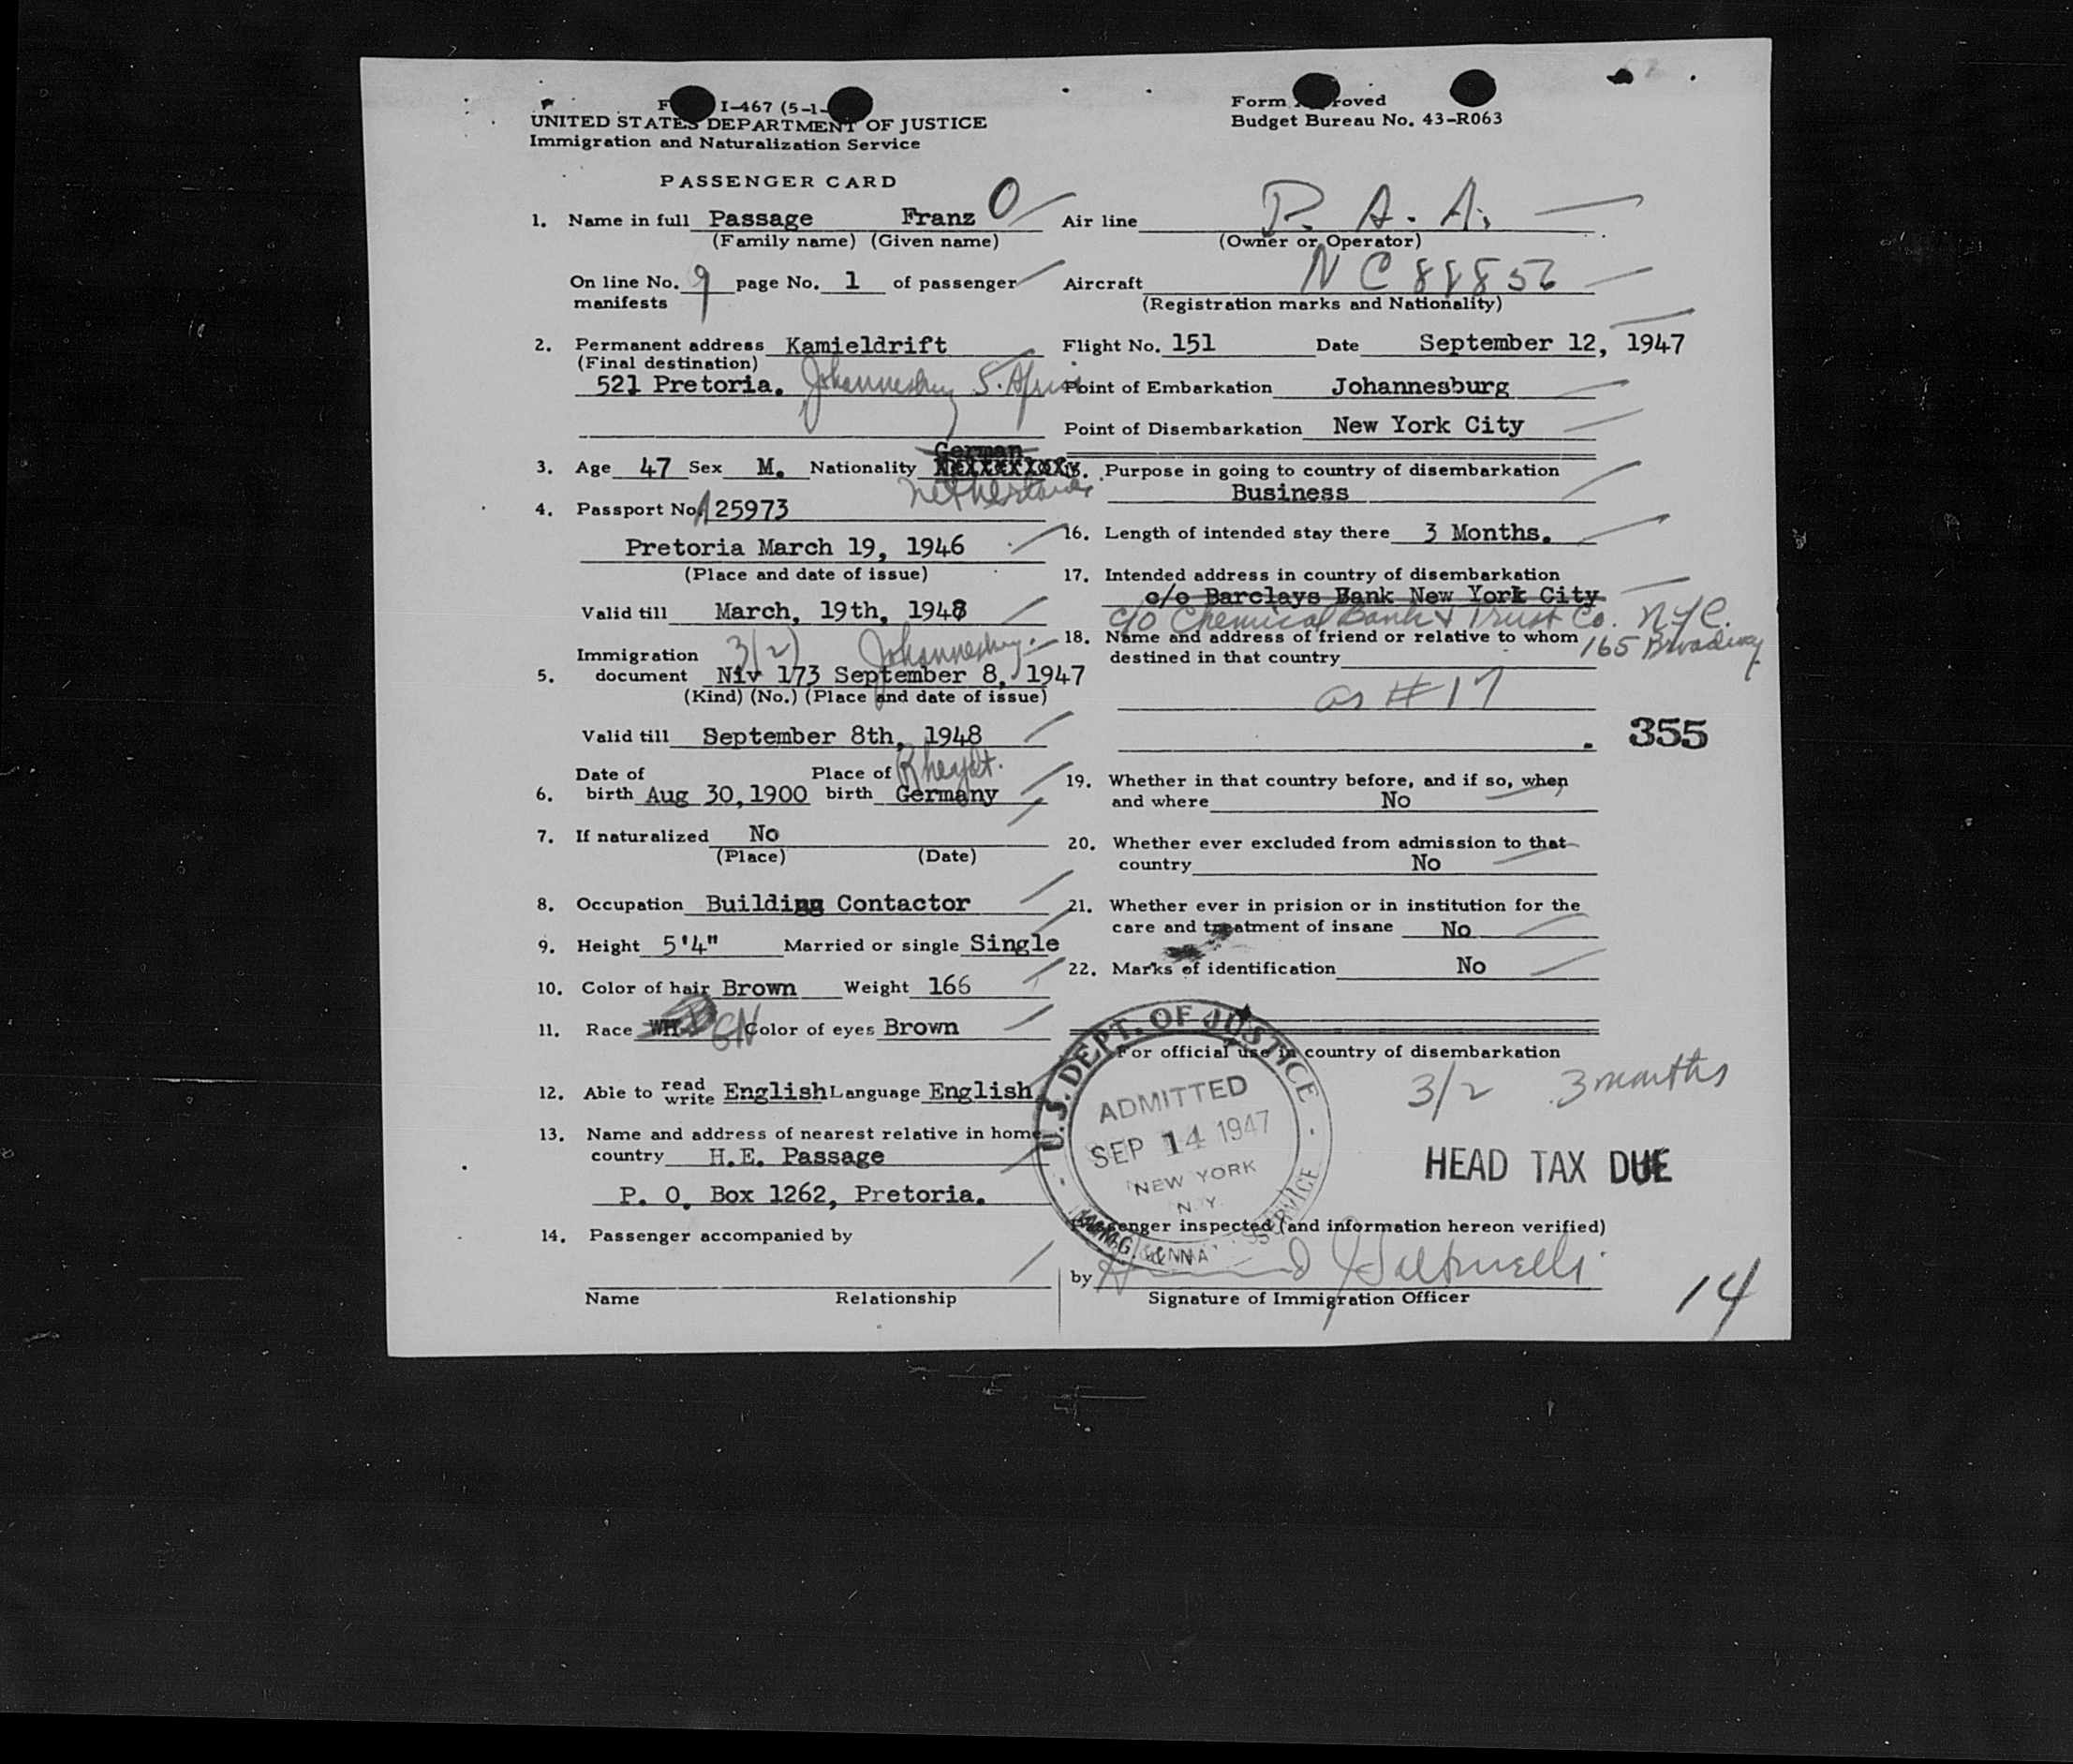 I-467 (5-1-
UNITED STATES DEPARTMENT OF JUSTICE
Immigration and Naturalization Service
PASSENGER CARD
Form Approved
Budget Bureau No. 43-R063
1. Name in full Passage Franz O
(Family name) (Given name)
On line No. 9 page No. 1 of passenger
manifests
2. Permanent address Kamieldrift
(Final destination)
521 Pretoria. Johannesburg S. Africa
3. Age 47 Sex M. Nationality German
Netherlands
4. Passport No. A 25973
Pretoria March 19, 1946
(Place and date of issue)
Valid till March, 19th, 1948
Immigration 3(2) Johannesburg.
5. document Niv 173 September 8, 1947
(Kind) (No.) (Place and date of issue)
Valid till September 8th, 1948
Date of Place of Rheydt.
6. birth Aug 30, 1900 birth Germany
7. If naturalized No
(Place) (Date)
8. Occupation Building Contactor
9. Height 5'4" Married or single Single
10. Color of hair Brown Weight 166
11. Race Color of eyes Brown
12. Able to read write English Language English
13. Name and address of nearest relative in home
country H.E. Passage
P. O. Box 1262, Pretoria.
14. Passenger accompanied by
Name Relationship
Air line P. A. A.
(Owner or Operator)
Aircraft NC 88856
(Registration marks and Nationality)
Flight No. 151 Date September 12, 1947
Point of Embarkation Johannesburg
Point of Disembarkation New York City
Purpose in going to country of disembarkation
Business
16. Length of intended stay there 3 Months.
17. Intended address in country of disembarkation
c/o Barclays Bank New York City
c/o Chemical Bank & Trust Co. NYC.
165 Broadway
18. Name and address of friend or relative to whom
destined in that country
as #17
355
19. Whether in that country before, and if so, when
and where No
20. Whether ever excluded from admission to that
country No
21. Whether ever in prision or in institution for the
care and treatment of insane No
22. Marks of identification No
For official use in country of disembarkation
3/2 3 months
U.S. DEPT. OF JUSTICE
ADMITTED
SEP 14 1947
NEW YORK
N.Y.
HEAD TAX DUE
Passenger inspected (and information hereon verified)
by
Signature of Immigration Officer
14